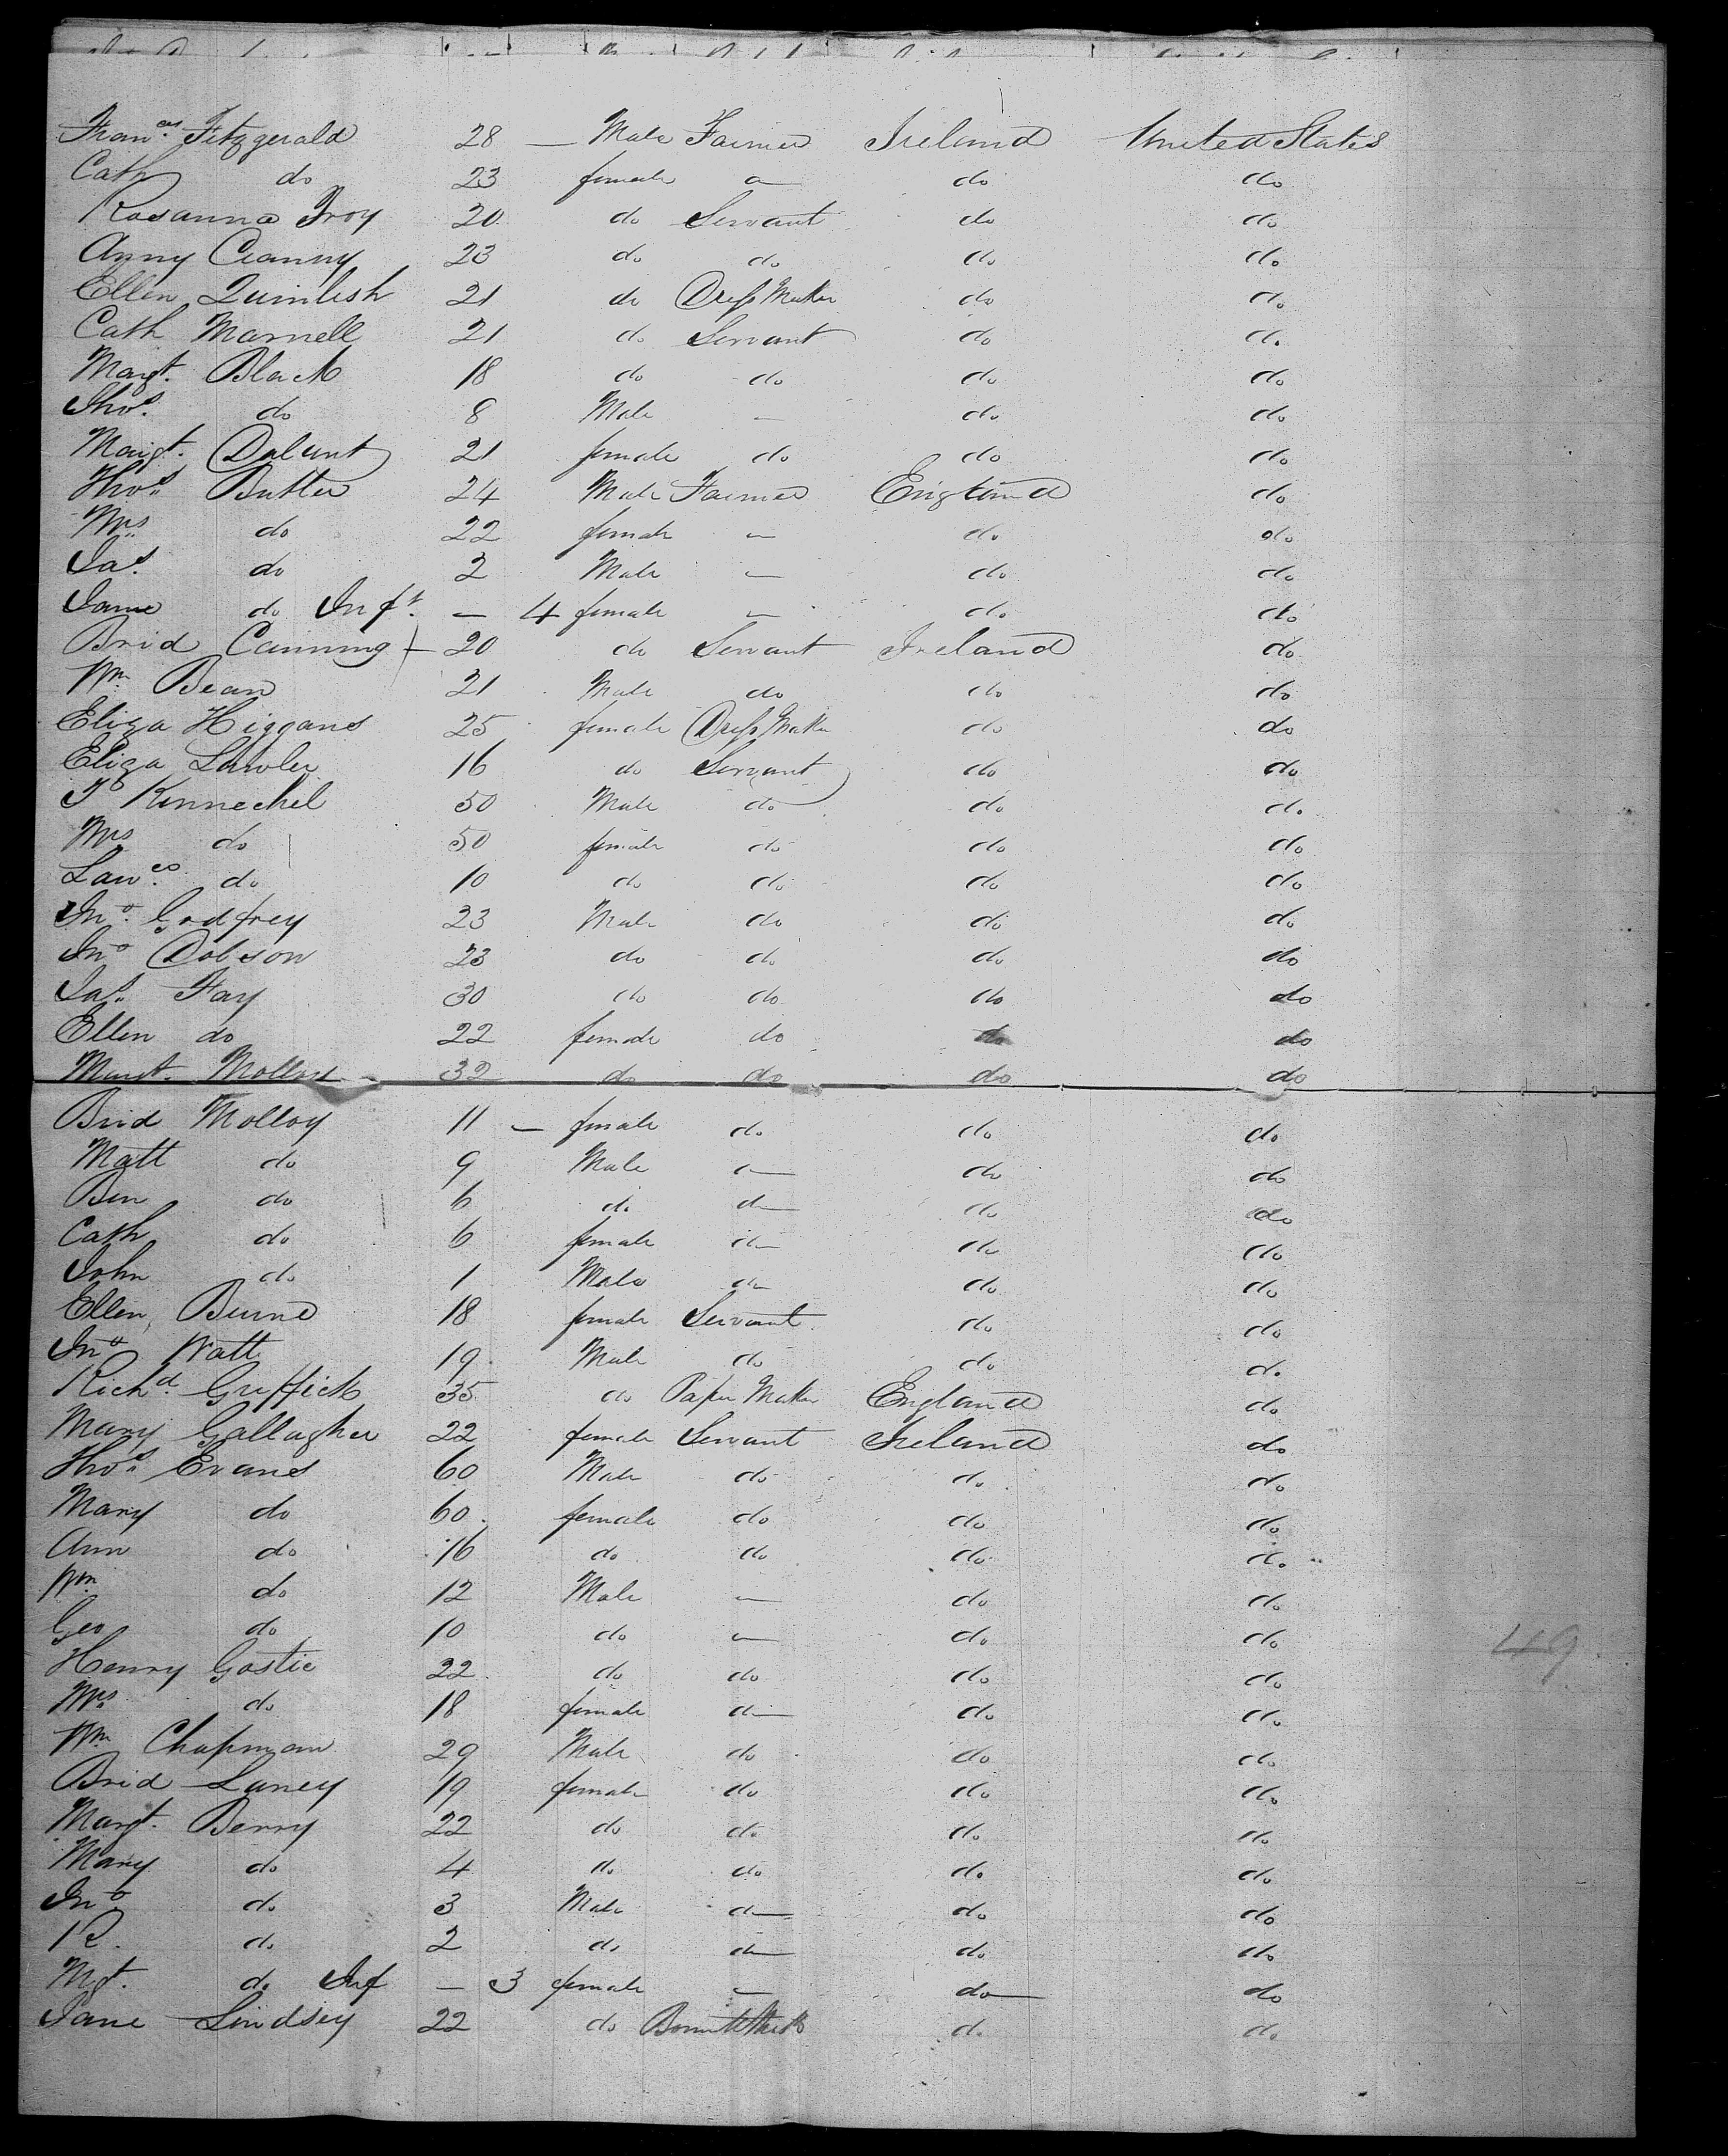 Fran.ces Fitzgerald 28 — Male Farmer Ireland United States
Cath do 23 female — do do
Rosanna Troy 20 do Servant do do
Anny Cranny 23 do do do do
Ellen Quinlish 21 do Dress Maker do do
Cath Marnell 21 do Servant do do
Margt. Black 18 do do do do
Thos. do 8 Male — do do
Margt. 21 female do do do
Thos. Butler 24 Male Farmer England do
Mrs do 22 female — do do
Jas. do 2 Male — do do
Jane do Inft. — 4 female — do do
Brid Canning — 20 do Servant Ireland do
Wm. Bean 21 Male do do do
Eliza Higgans 25 female Dress Maker do do
Eliza Lawler 16 do Servant do do
P Kennechel 50 Male do do do
Mrs do 50 female do do do
Lawce. do 10 do do do do
Jno. Godfrey 23 Male do do do
Jno Dobson 23 do do do do
Jas. Fay 30 do do do do
Ellen do 22 female do do do
Margt. Molloy 32 do do do do
Brid Molloy 11 — female do do do
Matt do 9 Male — do do
Ben do 6 do do do do
Cath do 6 female do do do
John do 1 Male do do do
Ellen Burne 18 female Servant do do
Jno Watt 19 Male do do do
Richd. Griffith 35 do Paper Maker England do
Mary Gallagher 22 female Servant Ireland do
Thos. Evans 60 Male do do do
Mary do 60 female do do do
Ann do 16 do do do do
Wm. do 12 Male — do do
Geo do 10 do — do do
Henry Gostie 22 do do do do
Mrs do 18 female do do do
Wm. Chapman 29 Male do do do
Brid Luney 19 female do do do
Margt. Berry 22 do do do do
Mary do 4 do do do do
Jno do 3 Male do do do
R. do 2 do do do do
Mgt. do Inf — 3 female — do do
Jane Lindsey 22 do do do
49